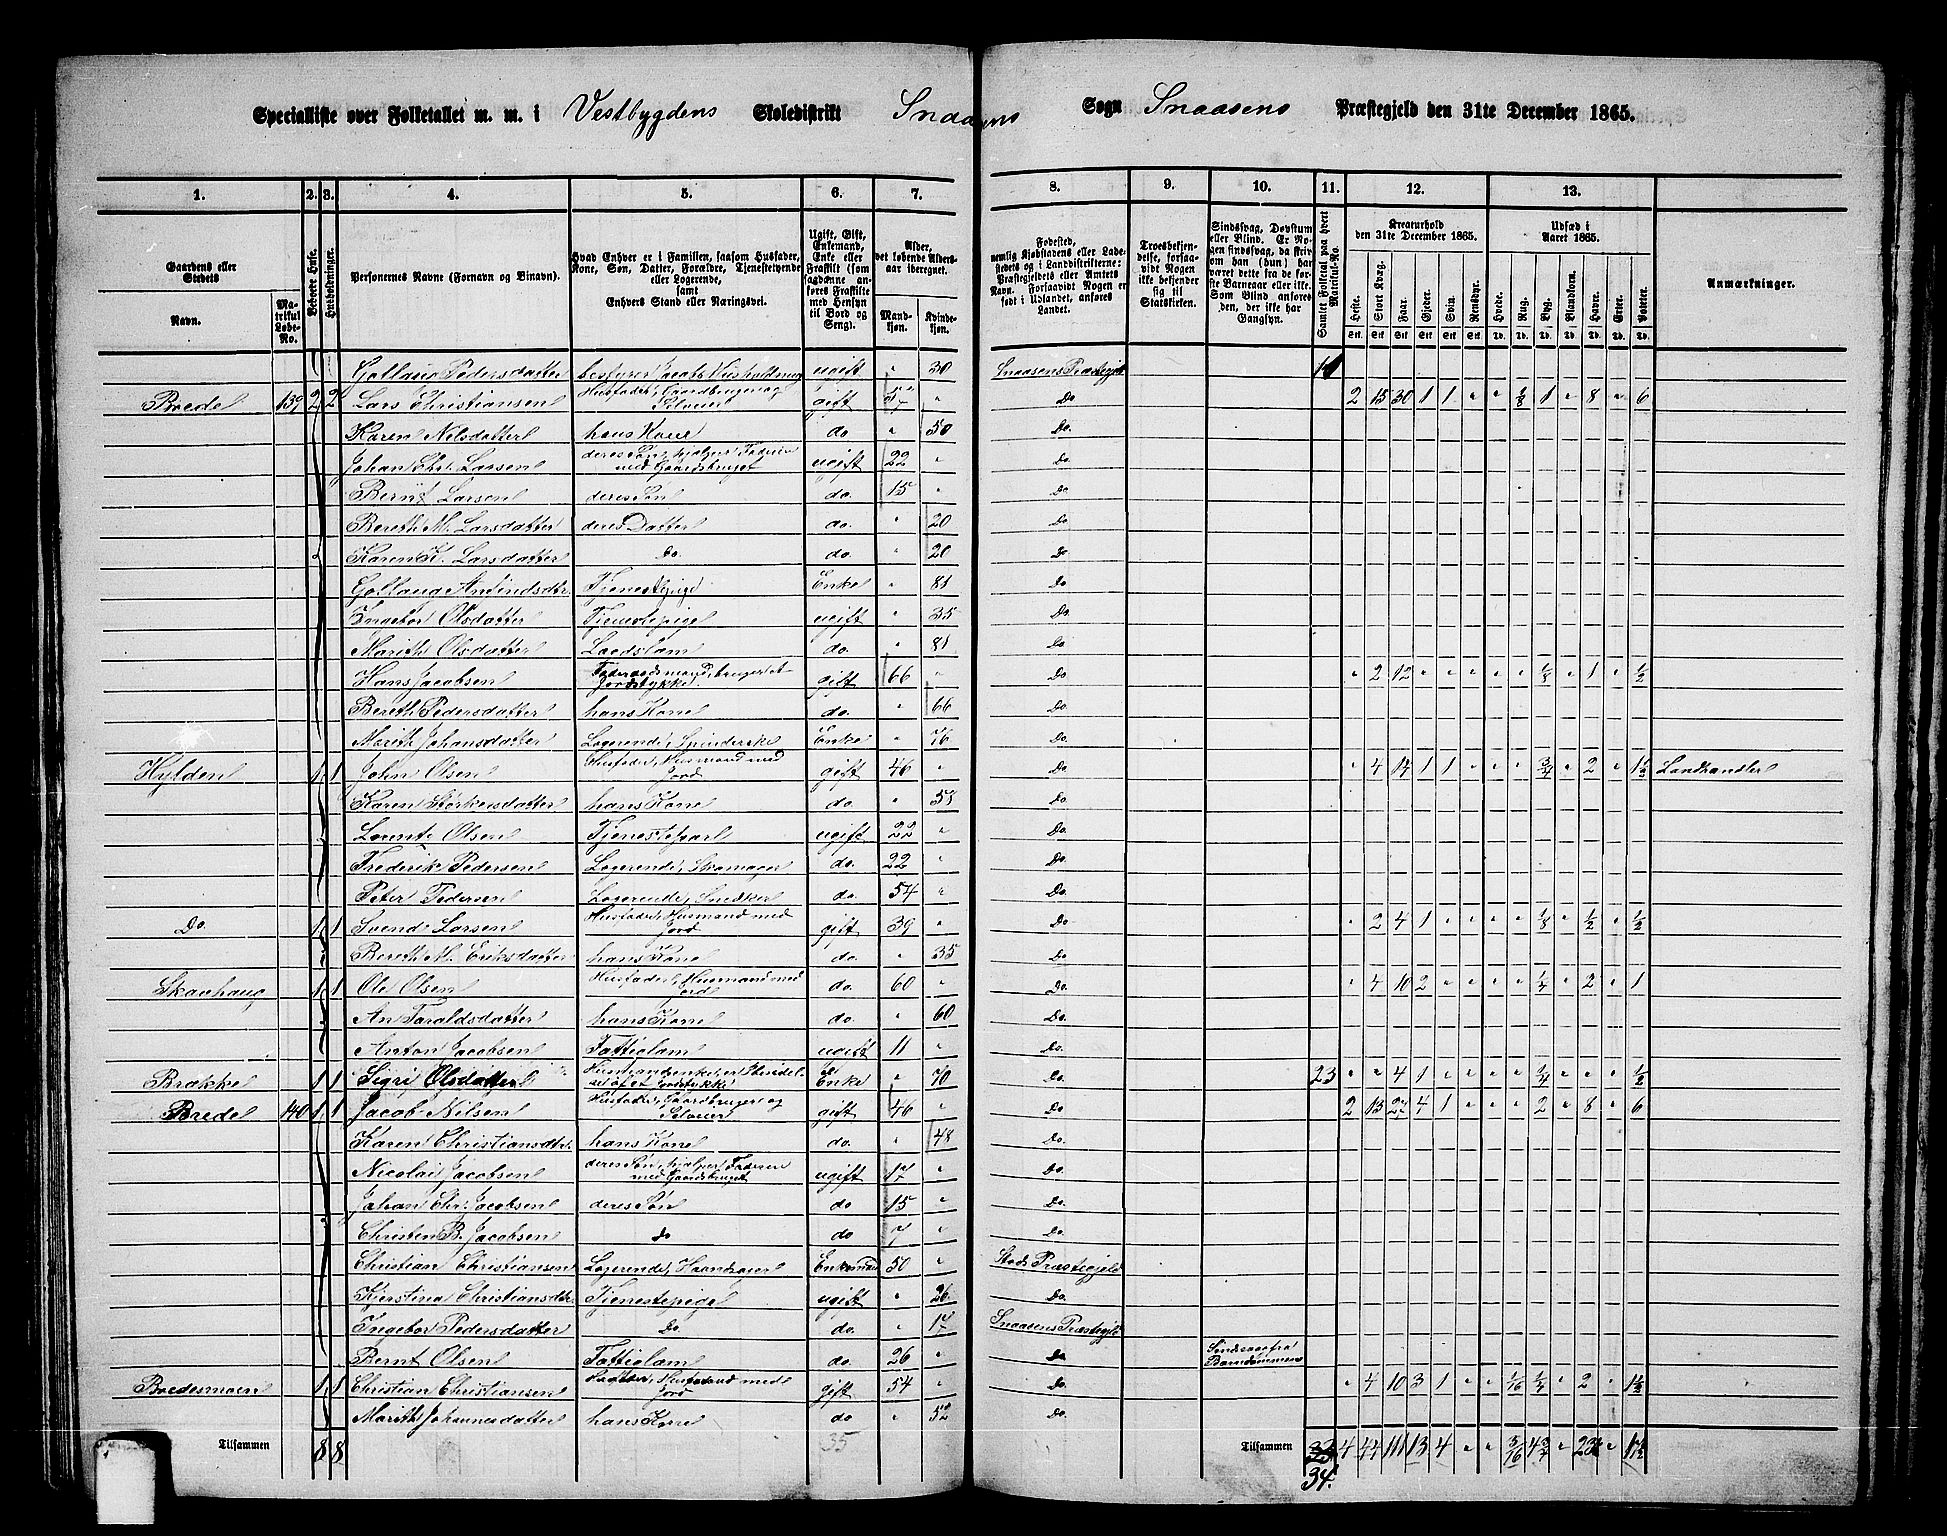 Specialliste over Folketallet m. m. i Vestbygdens Skoledistrikt Snaasens Sogn Snaasens Præstegjeld den 31te December 1865.
1. 2. 3. 4. 5. 6. 7. 8. 9. 10. 11. 12. 13.
Gaardens eller Stedets
Navn.
Matrikul Løbe-No.
Beboede Huse.
Husholdninger.
Personernes Navne (Fornavn og Binavn).
Hvad Enhver er i Familien, saasom Husfader, Kone, Søn, Datter, Forældre, Tjenestetyende eller Logerende, samt Enhvers Stand eller Næringsvei.
Ugift, Gift, Enkemand, Enke eller Fraskilt (som saadanne anføres Fraskilte med Hensyn til Bord og Seng).
Alder, det løbende Aldersaar iberegnet.
Mandkjøn. Kvindekjøn.
Fødested, nemlig Kjøbstadens eller Ladestedets og i Landdistrikterne: Præstegjeldets eller Amtets Navn. Forsaavidt Nogen er født i Udlandet, anføres Landet.
Troesbekjendelse, forsaavidt Nogen ikke bekjender sig til Statskirken.
Sindssvag, Døvstum eller Blind. Er Nogen sindssvag, da skrives om han (hun) har været dette fra de første Barneaar eller ikke. Som Blind anføres den, der ikke har Gangsyn.
Samlet Folketal paa hvert Matrikul-No.
Kreaturhold den 31te December 1865.
Heste. Stort Kvæg. Faar. Gjeder. Svin. Rensdyr.
Udsæd i Aaret 1865.
Hvede. Rug. Byg. Blandkorn. Havre. Erter. Poteter.
Anmærkninger.
Gollaug Pedersdatter ugift " 30 Snaasens Præstegjeld
Brede 139 2 2 Lars Christiansen Husfader, Gaardbruger og Selveier gift 57 " Do 2 15 30 1 1 " " 3/8 1 " 8 " 6
Karen Nilsdatter hans Kone do " 50 Do.
Johan Chr. Larsen deres Søn, hjælper Faderen med Gaardsbruget ugift 22 " Do
Bernt Larsen deres Søn do. 15 " Do
Bereth M. Larsdatter deres Datter do. " 20 Do
Karen K. Larsdatter Do. do. " 20 Do
Gollaug Amundsdtr. Tjenestepige Enke " 81 Do
Ingebor Olsdatter Tjenestepige ugift " 35 Do
Marith Olsdatter Lægdslem do. " 81 Do
Hans Jacobsen Føderaadsmand, bruger et Jordstykke gift 66 " Do " 2 12 " " " " " 1/8 " 1 " 1/2
Bereth Pedersdatter hans Kone do. " 66 Do.
Marith Johansdatter Logerende, Spinderske Enke " 76 Do.
Hylden 1 1 John Olsen Husfader, Husmand med Jord gift 46 " Do " 4 14 1 1 " " " 3/4 " 2 " 1 1/2 Landhandler
Karen Størkersdatter hans Kone do " 55 Do.
Lorents Olsen Tjenestekarl ugift 22 " Do.
Frederik Pedersen Logerende, Skomager do. 22 " Do.
Peter Pedersen Logerende, Snedker do 54 " Do.
Do. 1 1 Svend Larsen Husfader, Husmand med Jord gift 39 " Do " 2 4 1 " " " " 1/8 " 1/2 " 1/2
Bereth M. Eriksdatter hans Kone do. " 35 Do
Skavhaug 1 1 Ole Olsen Husfader, Husmand med Jord do. 60 " Do " 4 10 2 " " " " 1/4 " 2 " 1
An Taraldsdatter hans Kone do. " 60 Do.
Anton Jacobsen Fattiglem ugift 11 " Do.
Brække 1 1 Sigri Olsdatter Enke " 70 Do. 23 " " 4 1 " " " " 1/4 " " " 1/2
Brede 140 1 1 Jacob Nilsen Husfader, Gaardbruger og Selveier gift 46 " Do 2 13 27 4 1 " " " 2 " 8 " 6
Karen Christiansdtr. hans Kone do. " 48 Do.
Nicolai Jacobsen deres Søn, hjælper Faderen med Gaardsbruget ugift 17 " Do.
Johan Chr. Jacobsen deres Søn do 15 " Do.
Christen B. Jacobsen do do 7 " Do.
Christian Christiansen Logerende, Enkemand 50 " Stods Præstegjeld
Kjerstina Christiansdtr. Tjenestepige ugift " 26 Do.
Ingebor Pedersdatter Do. do. " 17 Snaasens Præstegjeld
Bernt Olsen Fattiglem do. 26 " Do Sindssvag fra Barndommen
Bredesmoen 1 1 Christian Christiansen Husfader, Husmand med Jord gift 54 " Do. " 4 10 3 1 " " 1/16 1/4 " 2 " 1 1/2
Marith Johannesdatter hans Kone do " 52 Do.
Tilsammen 8 8 35 Tilsammen 33 4 44 111 13 4 " " 3/16 4 3/4 " 23 1/2 " 17 1/2
34.